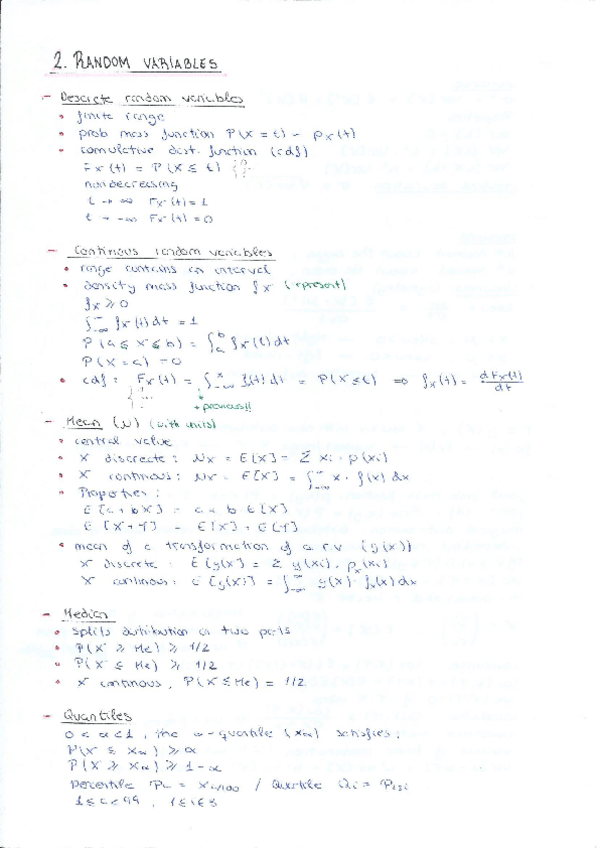 2. RANDOM VARIABLES
- Descrete random variables
• finite range
• prob mass function P(X = t) - px(t)
- comulative dist. function (cdf)
Fx(t) = P(X ≤ t) {
nondecreasing
t → ∞ Fx(t) = 1
t → -∞ Fx(t) = 0
- Continous random variables
• range contains an interval
• density mass function fx (represent)
fx ≥ 0
∫-∞^∞ fx(t) dt = 1
P(a ≤ X ≤ b) = ∫a^b fx(t) dt
P(X = a) = 0
• cdf: Fx(t) = ∫-∞^x f(t) dt = P(X ≤ t) ⇒ fx(t) = dFx(t)/dt
- Mean (μ) (with units)
• central value
• X discreate: μx = E[X] = Σ xi · p(xi)
• X continous: μx = E[X] = ∫-∞^∞ x · f(x) dx
• Properties:
E[a + bX] = a + b E[X]
E[X + Y] = E[X] + E[Y]
• mean of a transformation of a r.v. (g(x))
X discrete: E[g(x)] = Σ g(xi) · px(xi)
X continous: E[g(x)] = ∫-∞^∞ g(x) · fx(x) dx
- Median
• splits distribution in two parts
• P(X ≥ Me) ≥ 1/2
• P(X ≤ Me) ≥ 1/2
• X continous, P(X ≤ Me) = 1/2
- Quantiles
0 < α < 1, the α-quartile (xα) satisfies:
P(X ≤ xα) ≥ α
P(X ≥ xα) ≥ 1-α
percentile Pi = xi/100 / Quartile Qi = P25i
1 ≤ i ≤ 99, 1 ≤ i ≤ 3